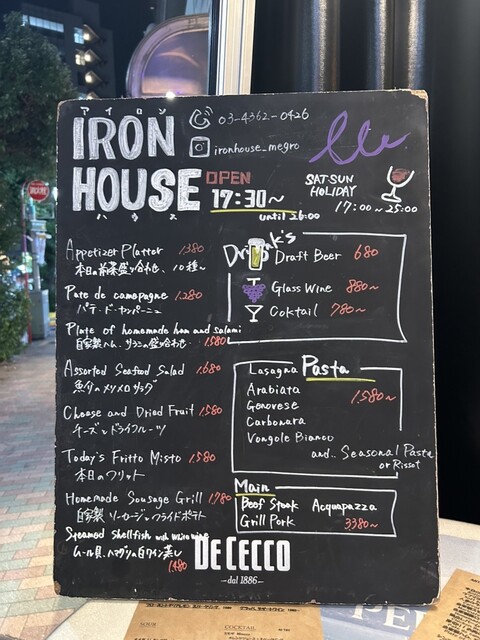 アイロン
IRON
HOUSE
ハウス
03-4362-0426
ironhouse_megro
OPEN
17:30~
until 26:00
SAT SUN
HOLIDAY
17:00~25:00
Appetizer Platter 1380
本日の前菜盛り合わせ、10種~
Pate de camepagne 1.280
パテ・ド・カンパーニュ
Plate of homemade ham and salami
自家製ハム、サラミの盛り合わせ 1.580
Assorted Seafood Salad 1.680
魚介のメリメロサラダ
Cheese and Dried Fruit 1.580
チーズとドライフルーツ
Today's Fritto Misto 1.580
本日のフリット
Homemade Sousage Grill 1780
自家製ソーセージとフライドポテト
Steamed shellfish with white wine
ムール貝、ハマグリの白ワイン蒸し
1480
Drink's
Draft Beer 680
Glass Wine 880~
Coktail 780~
Pasta
Lasagna
Arabiata
Genovese
Carbonara
Vongole Bianco
1,580~
and.. Seasonal Pasta
or Risset
Main
Beef Steak Acquapazza
Grill Pork 3380~
DE CECCO
dal 1886
COCKTAIL